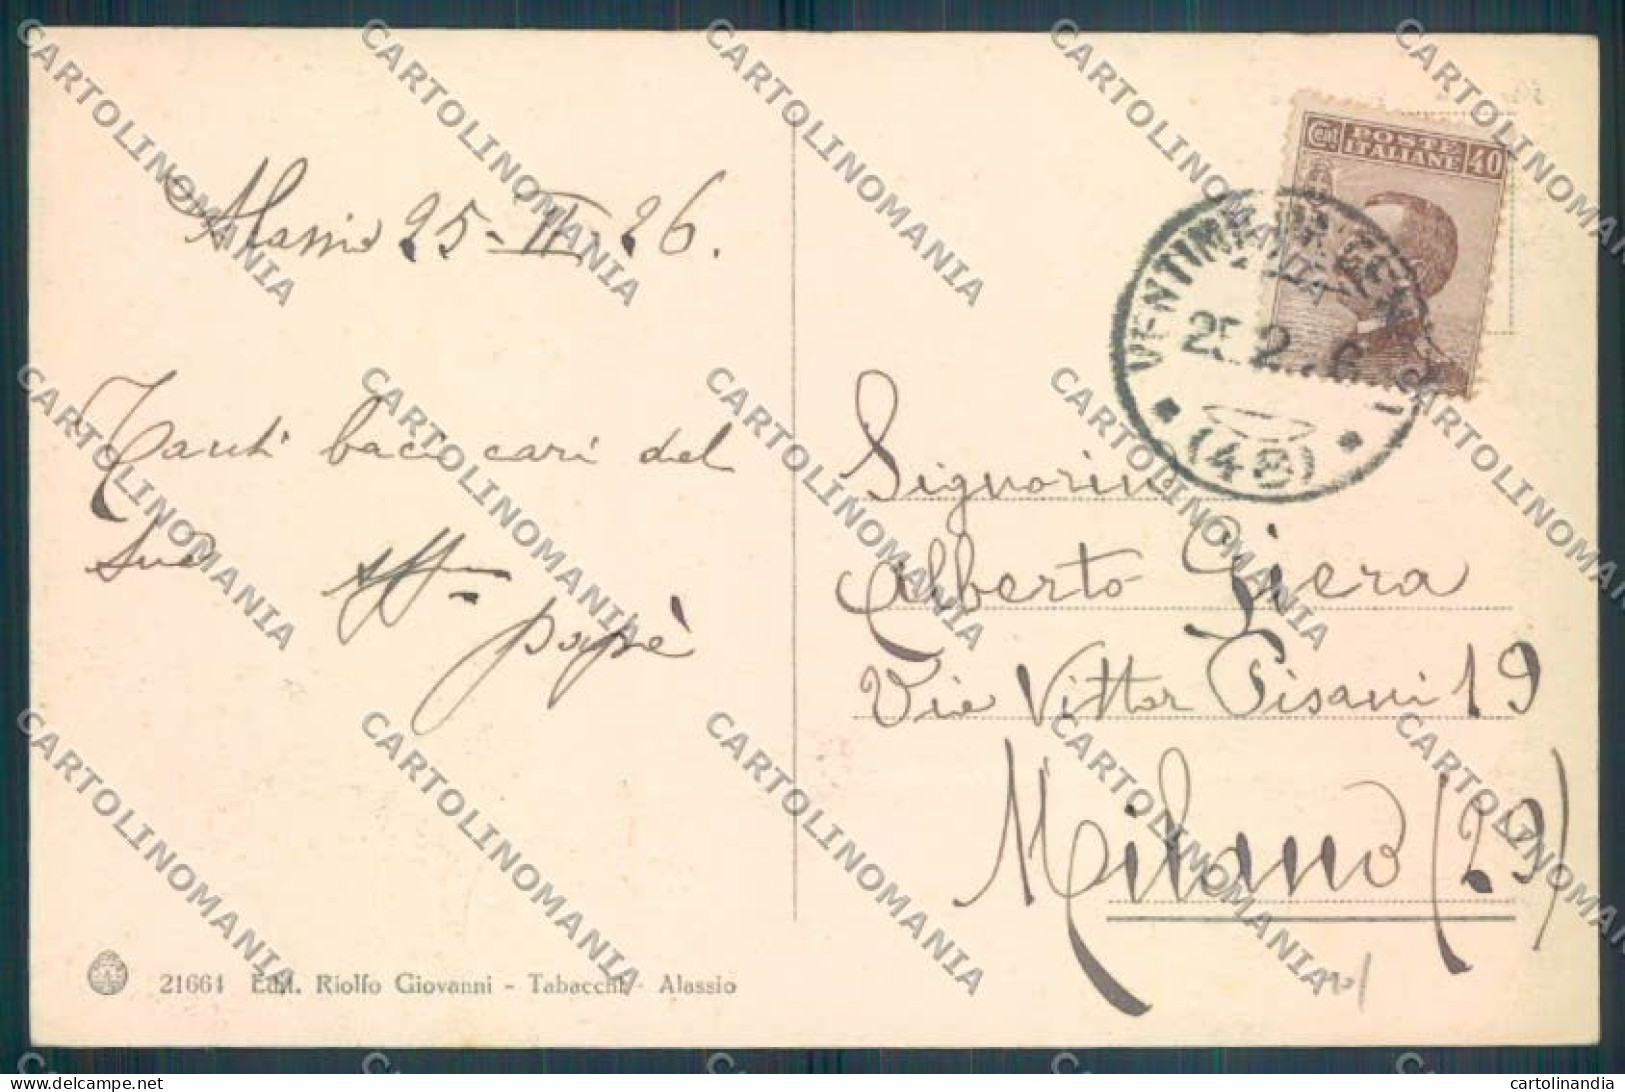 Alassio 25-II-26.
Tanti baci cari dal
suo
papà
Cent POSTE ITALIANE 40
VENTIMI
25.2. 6
(48)
Signorino
Alberto Giera
Via Vittor Pisani 19
Milano (29)
21664 Edit. Riolfo Giovanni - Tabacchi - Alassio
CARTOLINOMANIA
cartolinandia.delcampe.net
cartolinandia